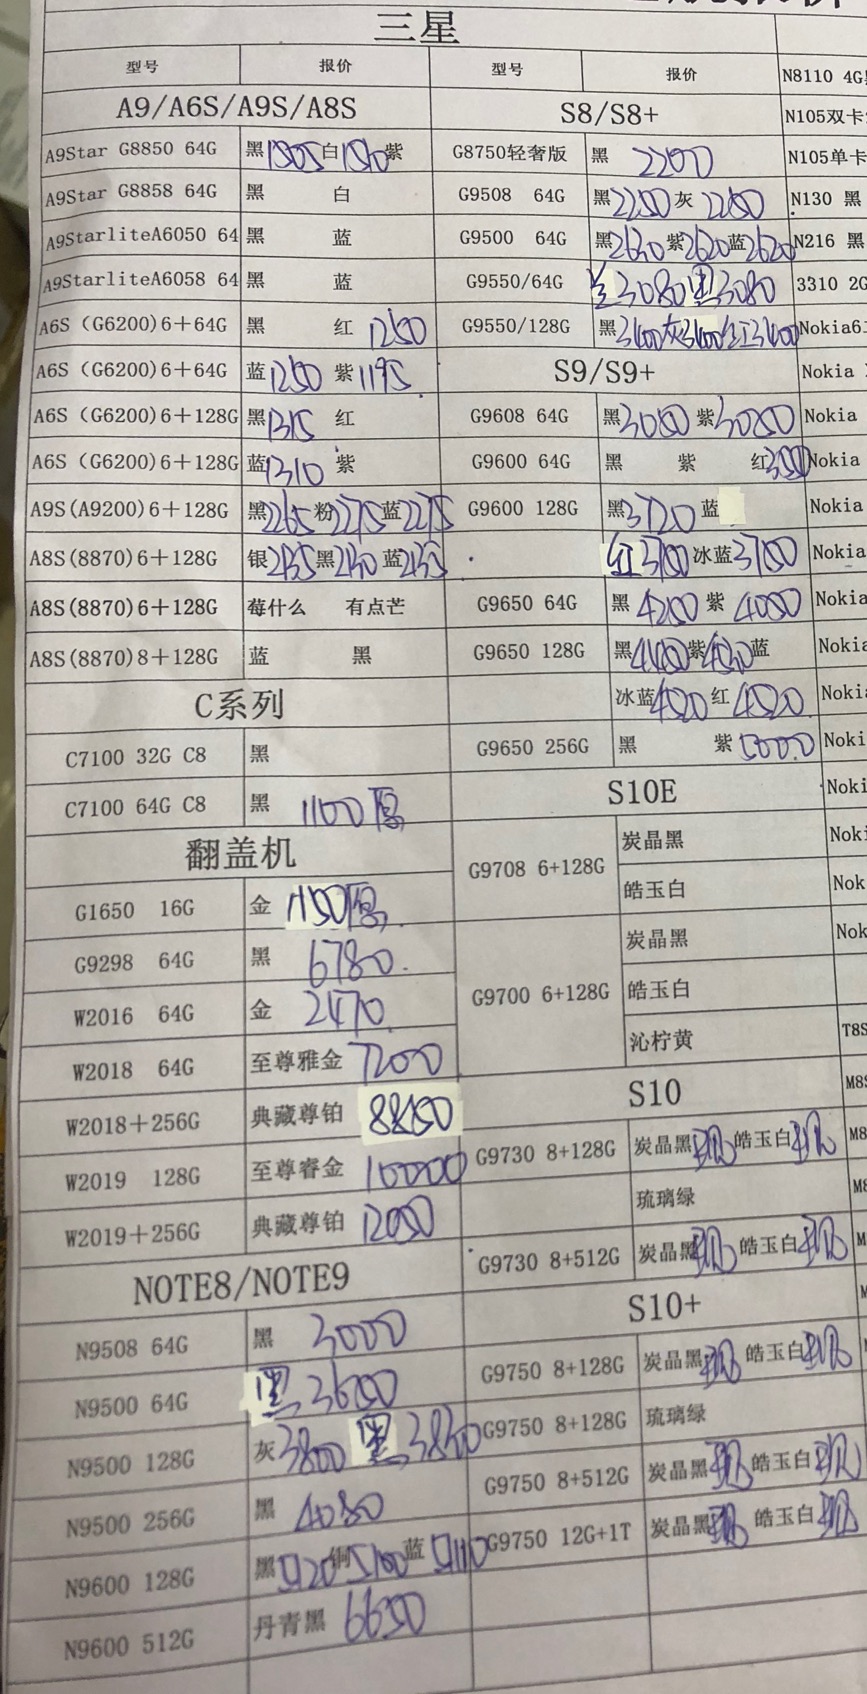 三星
型号 报价 型号 报价 N8110 4G
A9/A6S/A9S/A8S S8/S8+ N105双卡
A9Star G8850 64G 黑1805白1810紫 G8750轻奢版 黑 2200 N105单卡
A9Star G8858 64G 黑 白 G9508 64G 黑2250灰 2250 N130 黑
A9StarliteA6050 64 黑 蓝 G9500 64G 黑2630紫2620蓝2620 N216 黑
A9StarliteA6058 64 黑 蓝 G9550/64G 3080黑3080 3310 2G
A6S (G6200)6+64G 黑 红 1250 G9550/128G 黑3400灰3400红3400 Nokia6
A6S (G6200)6+64G 蓝1250 紫1195 S9/S9+ Nokia
A6S (G6200)6+128G 黑1315 红 G9608 64G 黑3050 紫3050 Nokia
A6S (G6200)6+128G 蓝1310 紫 G9600 64G 黑 紫 红 Nokia
A9S(A9200)6+128G 黑2265粉2275蓝2275 G9600 128G 黑3720 蓝 Nokia
A8S(8870)6+128G 银2135黑2130蓝2135 红3700冰蓝3700 Nokia
A8S(8870)6+128G 莓什么 有点芒 G9650 64G 黑 4200 紫 4050 Nokia
A8S(8870)8+128G 蓝 黑 G9650 128G 黑4480紫4530蓝 Nokia
C系列 冰蓝4520红 4520 Noki
C7100 32G C8 黑 G9650 256G 黑 紫5000 Noki
C7100 64G C8 黑 1100 S10E Noki
翻盖机 G9708 6+128G 炭晶黑 Nok
G1650 16G 金 1150 皓玉白 Nok
G9298 64G 黑 6780 G9700 6+128G 炭晶黑 Nok
W2016 64G 金 2470 皓玉白
W2018 64G 至尊雅金 7200 沁柠黄 T8S
W2018+256G 典藏尊铂 8850 S10 M8S
W2019 128G 至尊睿金 10000 G9730 8+128G 炭晶黑 皓玉白 M8
W2019+256G 典藏尊铂 12050 琉璃绿 M8
NOTE8/NOTE9 G9730 8+512G 炭晶黑 皓玉白 M
N9508 64G 黑 3000 S10+
N9500 64G 黑 3600 G9750 8+128G 炭晶黑 皓玉白
N9500 128G 灰3800 黑3830 G9750 8+128G 琉璃绿
N9500 256G 黑 4080 G9750 8+512G 炭晶黑 皓玉白
N9600 128G 黑5120铜5100蓝5110 G9750 12G+1T 炭晶黑 皓玉白
N9600 512G 丹青黑 6650